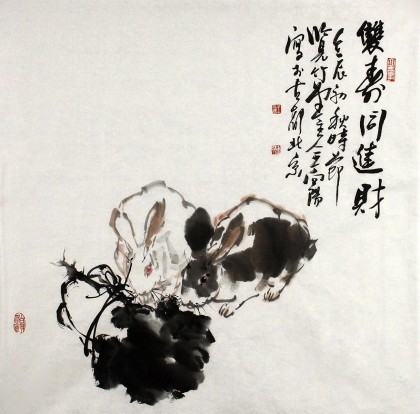 雙壽同進財
壬辰初秋時節
竹主人王向陽
寫於古都北京